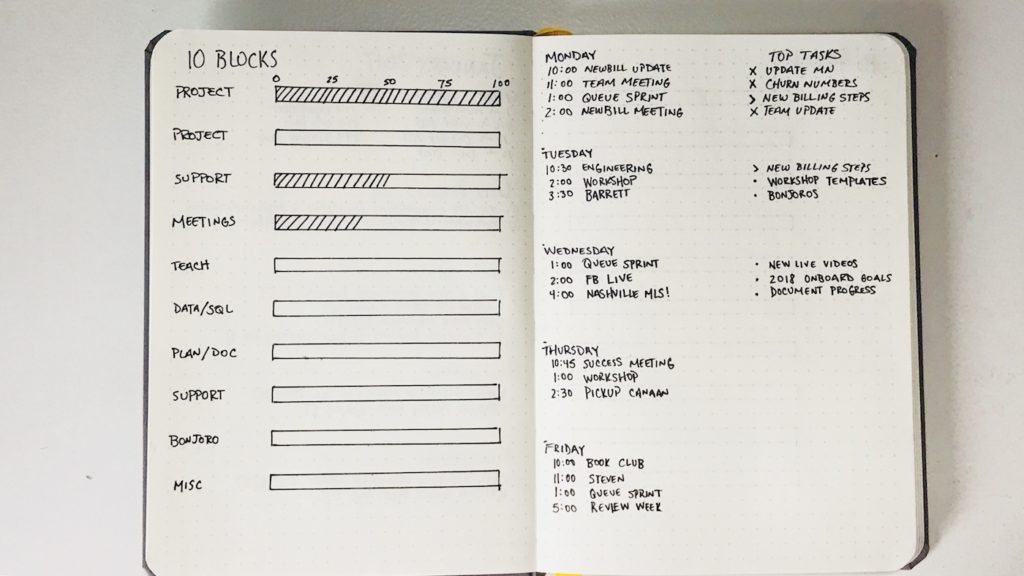 10 BLOCKS
0 25 50 75 100
PROJECT
PROJECT
SUPPORT
MEETINGS
TEACH
DATA/SQL
PLAN/DOC
SUPPORT
BONJORO
MISC
MONDAY
10:00 NEWBILL UPDATE
11:00 TEAM MEETING
1:00 QUEUE SPRINT
2:00 NEWBILL MEETING
TOP TASKS
x UPDATE MN
x CHURN NUMBERS
> NEW BILLING STEPS
x TEAM UPDATE
TUESDAY
10:30 ENGINEERING
2:00 WORKSHOP
3:30 BARRETT
> NEW BILLING STEPS
• WORKSHOP TEMPLATES
• BONJOROS
WEDNESDAY
1:00 QUEUE SPRINT
2:00 FB LIVE
4:00 NASHVILLE MLS!
• NEW LIVE VIDEOS
• 2018 ONBOARD GOALS
• DOCUMENT PROGRESS
THURSDAY
10:45 SUCCESS MEETING
1:00 WORKSHOP
2:30 PICKUP CANAAN
FRIDAY
10:00 BOOK CLUB
11:00 STEVEN
1:00 QUEUE SPRINT
5:00 REVIEW WEEK